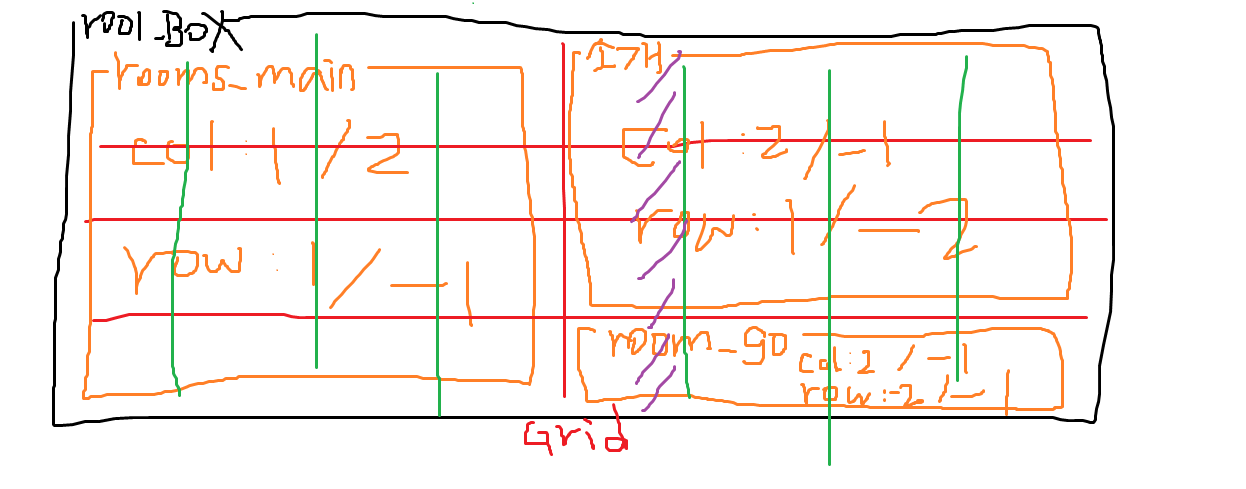 rool_BoX
rooms_main
col : 1 / 2
row : 1 / -1
I7H
Col : 2 / -1
row : 1 / -2
room_go
col : 2 / -1
row : -2 / -1
Grid